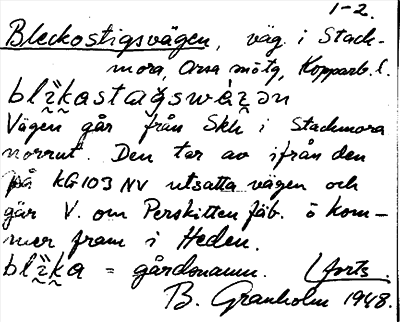 1-2.
Bleckostigsvägen, väg i Stack-
mora, Orsa sötg, Kopparb. l.
Vägen går från Skh i Stackmora
norrut. Den tar av ifrån den
på KG103 NV utsatta vägen och
går V. om Perskitten fäb. o kom-
mer fram i Heden.
= gårdsnamn. (forts.
B. Granholm 1948.